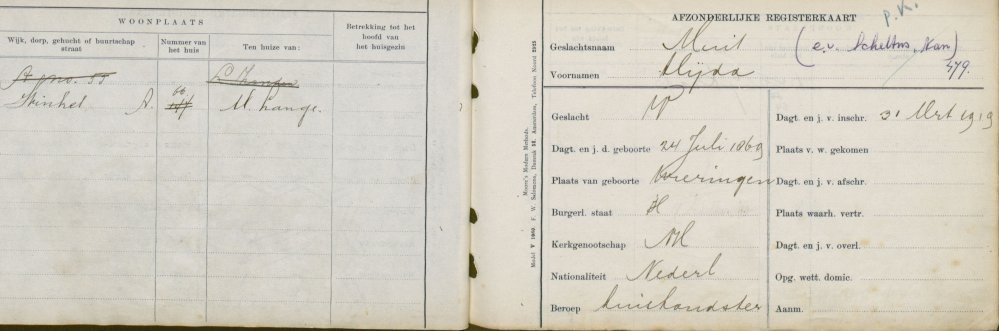 WOONPLAATS
Wijk, dorp, gehucht of buurtschap
straat
Nummer van
het huis
Ten huize van:
Betrekking tot het
hoofd van
het huisgezin
A no. 55
Stinhel A. 66
M. Lange.
Model V 1909. F. W. Salomons, Damrak 38, Amsterdam, Telefoon Noord 2925
p.K.
AFZONDERLIJKE REGISTERKAART
Geslachtsnaam Muit (e.v. Scheltus, Nan)
Voornamen Alijda 479.
Geslacht V
Dagt. en j. d. geboorte 24 Juli 1869
Plaats van geboorte Wieringen
Burgerl. staat H
Kerkgenootschap NH
Nationaliteit Nederl
Beroep huishoudster
Dagt. en j. v. inschr. 31 Mrt 1919
Plaats v. w. gekomen
Dagt. en j. v. afschr.
Plaats waarh. vertr.
Dagt. en j. v. overl.
Opg. wett. domic.
Aanm.